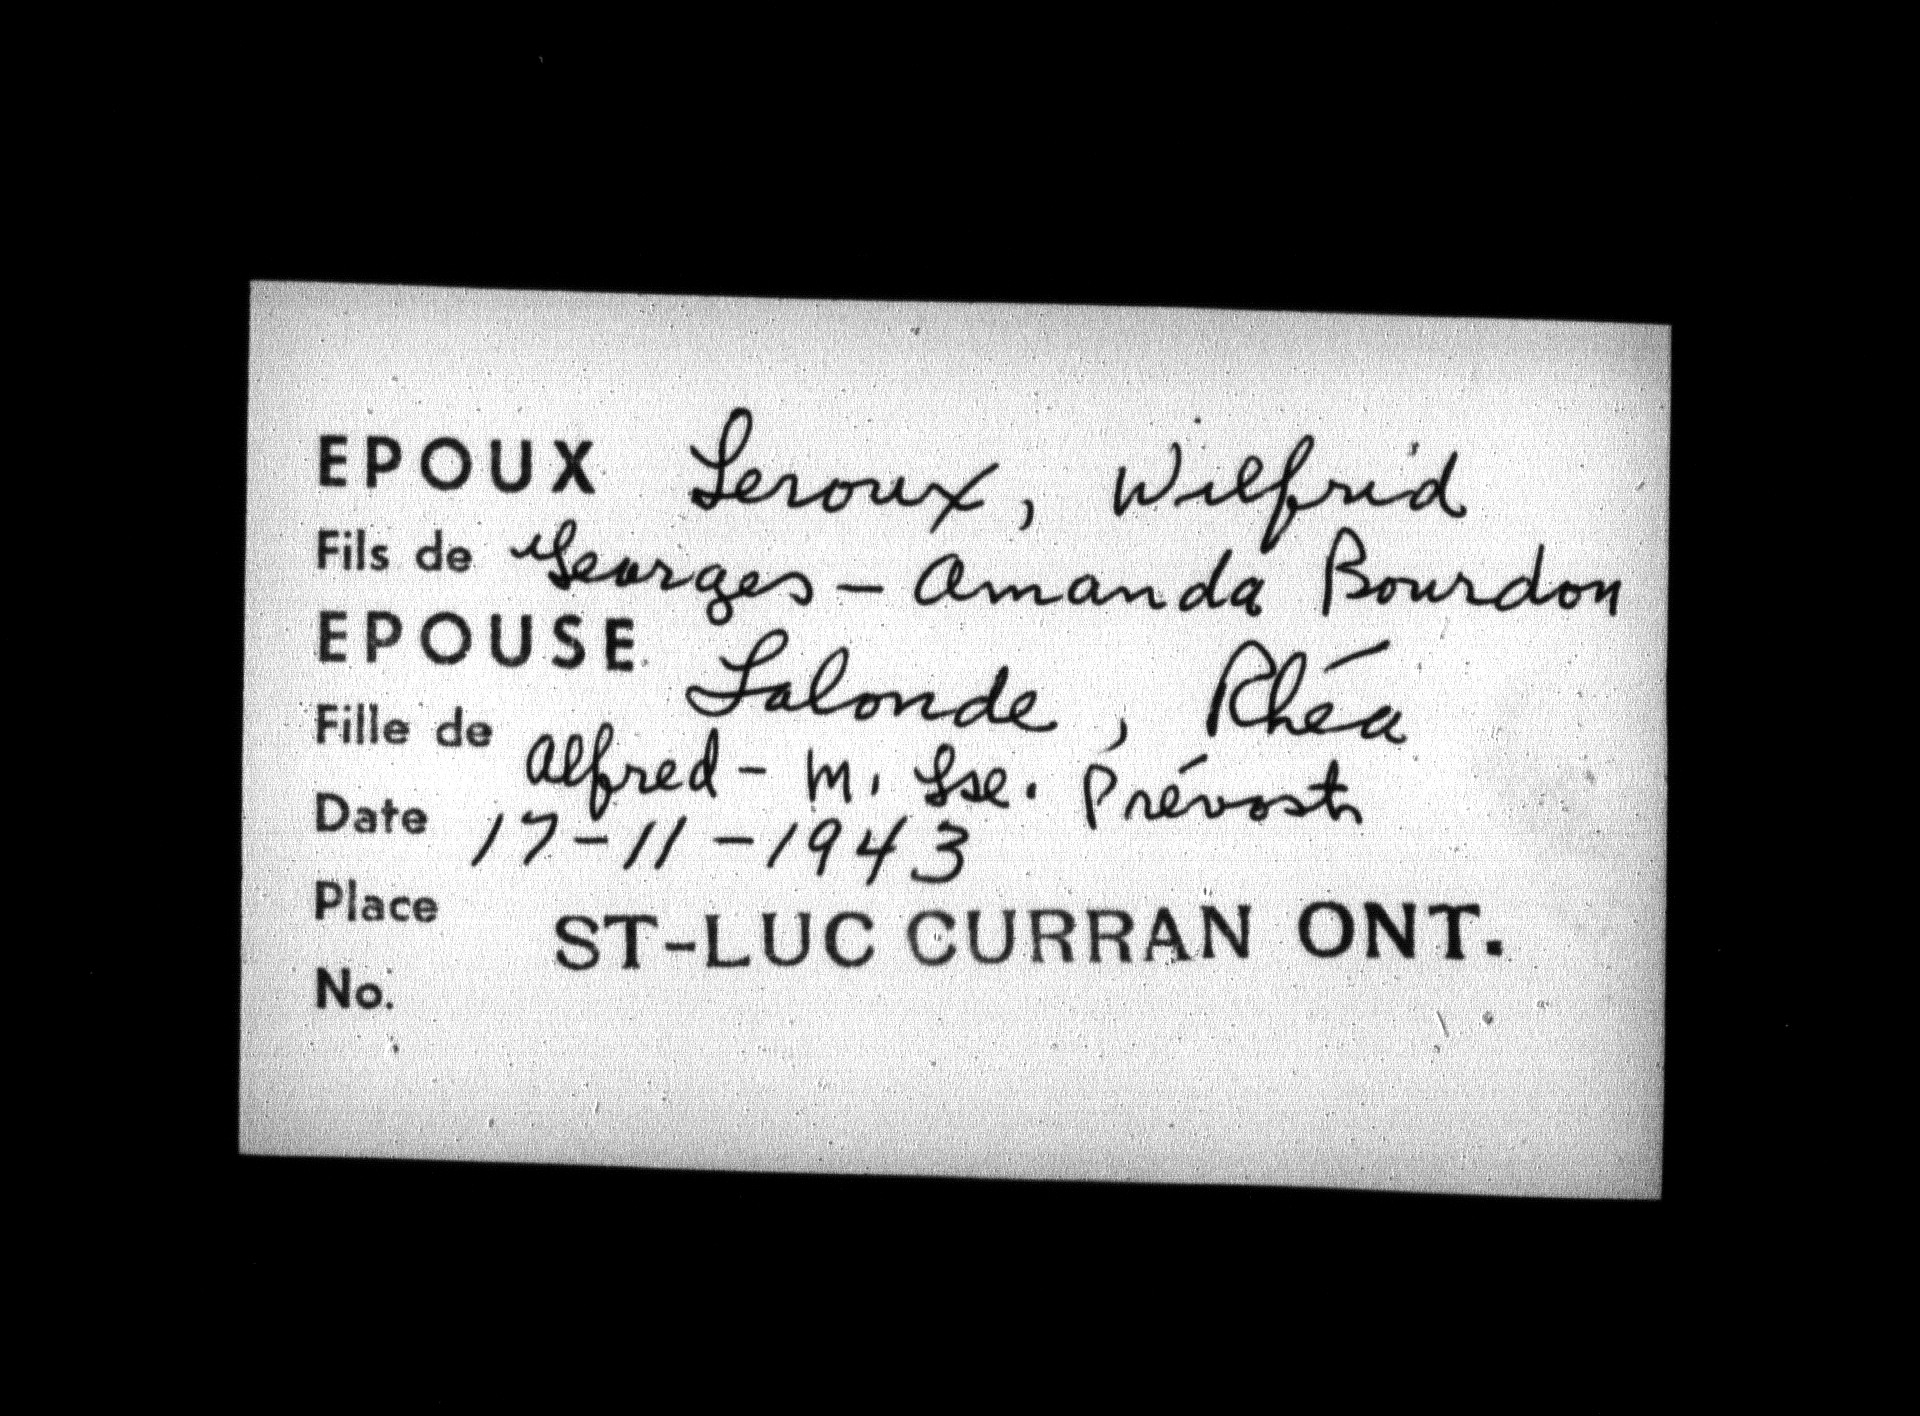 EPOUX Leroux, Wilfrid
Fils de Georges - Amanda Bourdon
EPOUSE Lalonde, Rhéa
Fille de Alfred - M. Lse. Prévost
Date 17-11-1943
Place ST-LUC CURRAN ONT.
No.